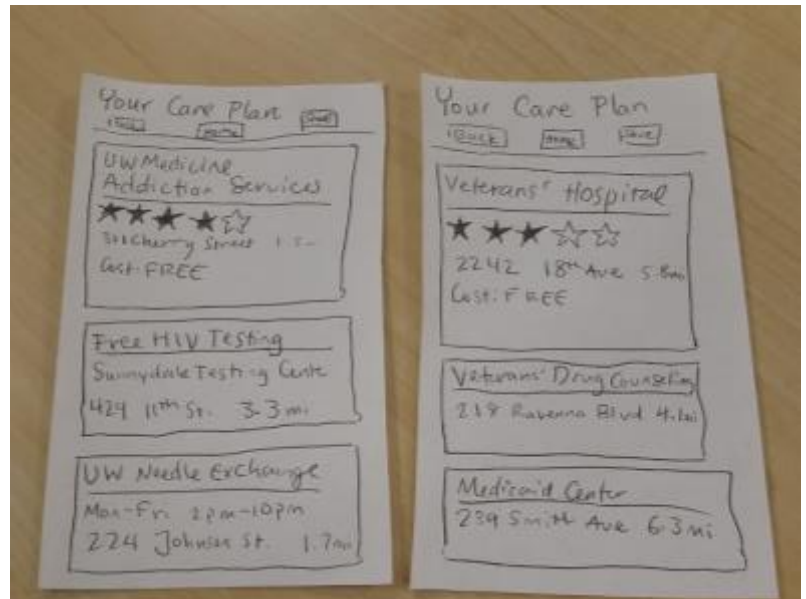 Your Care Plan
Back Home Save
UW Medicine
Addiction Services
Cherry Street
Cost: FREE
Free HIV Testing
Sunnydale Testing Cente
424 11th St. 3.3 mi
UW Needle Exchange
Mon-Fri 2pm-10pm
224 Johnson St. 1.7mi
Your Care Plan
Back Home Save
Veterans' Hospital
2242 18th Ave 5.8mi
Cost: FREE
Veterans' Drug Counseling
218 Ravenna Blvd 4.1mi
Medicaid Center
239 Smith Ave 6.3 mi